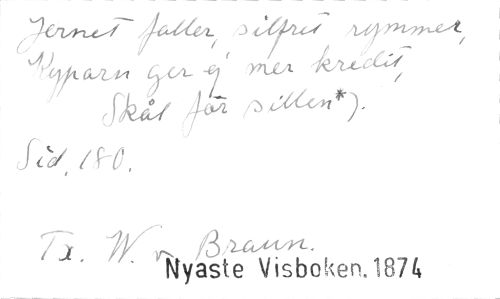 Jernet faller, silfret rymmer,
Kyparn ger ej mer kredit,
Skål för sillen*).
Sid. 180.
Tx. W. v Braun.
Nyaste Visboken. 1874